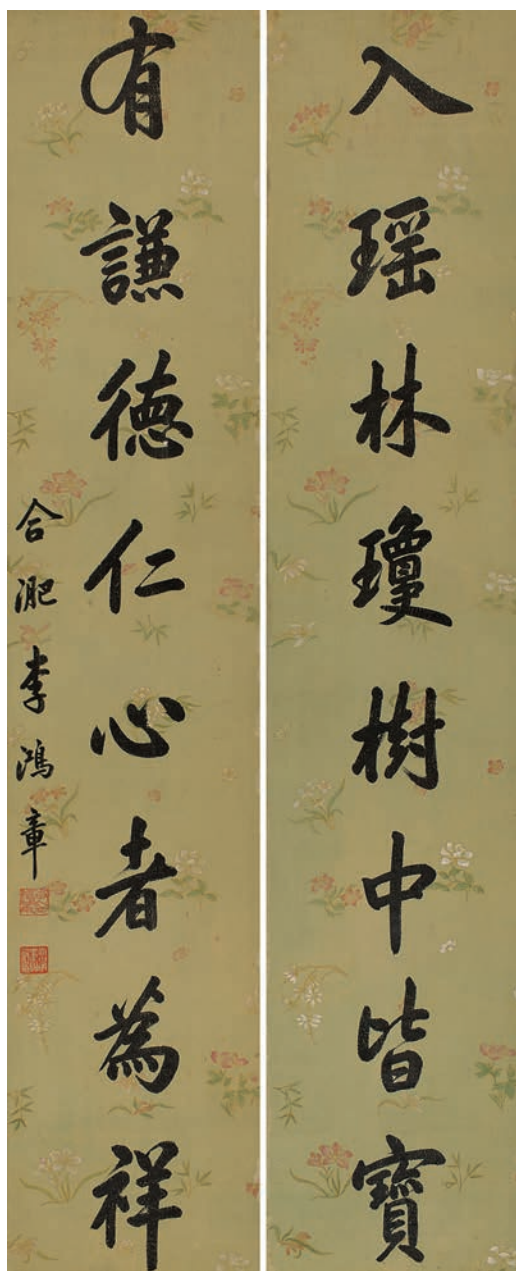 入瑶林瓊樹中皆寶
有謙德仁心者為祥
合淝李鴻章